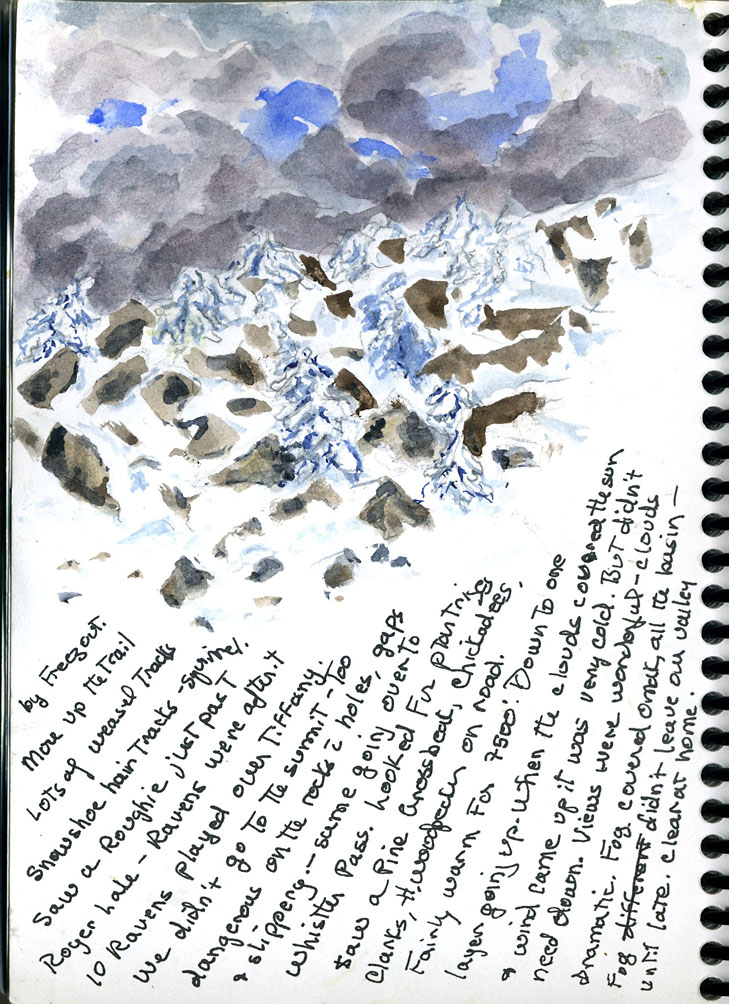 by Freezout.
More up the trail
Lots of weasel Tracks
Snowshoe hair Tracks - squirrel.
Saw a Roughie, just past
Roger Lake - Ravens were after it
10 Ravens played over Tiffany.
We didn't go to the summit - Too
dangerous on the rocks c̄ holes, gaps
& slippery. - same going over to
Whistler Pass. Looked For ptarmigan
Saw a Pine Grossbeak, Chickadees,
Clarks, H. woodpecker on road.
Fairly warm For 7500'. Down to one
layer going up. When the clouds covered the sun
& wind came up it was very cold. But didn't
need down. Views were wonderful - clouds
dramatic. Fog covered Omak, all the basin -
Fog different didn't leave our valley
until late. Clear at home.